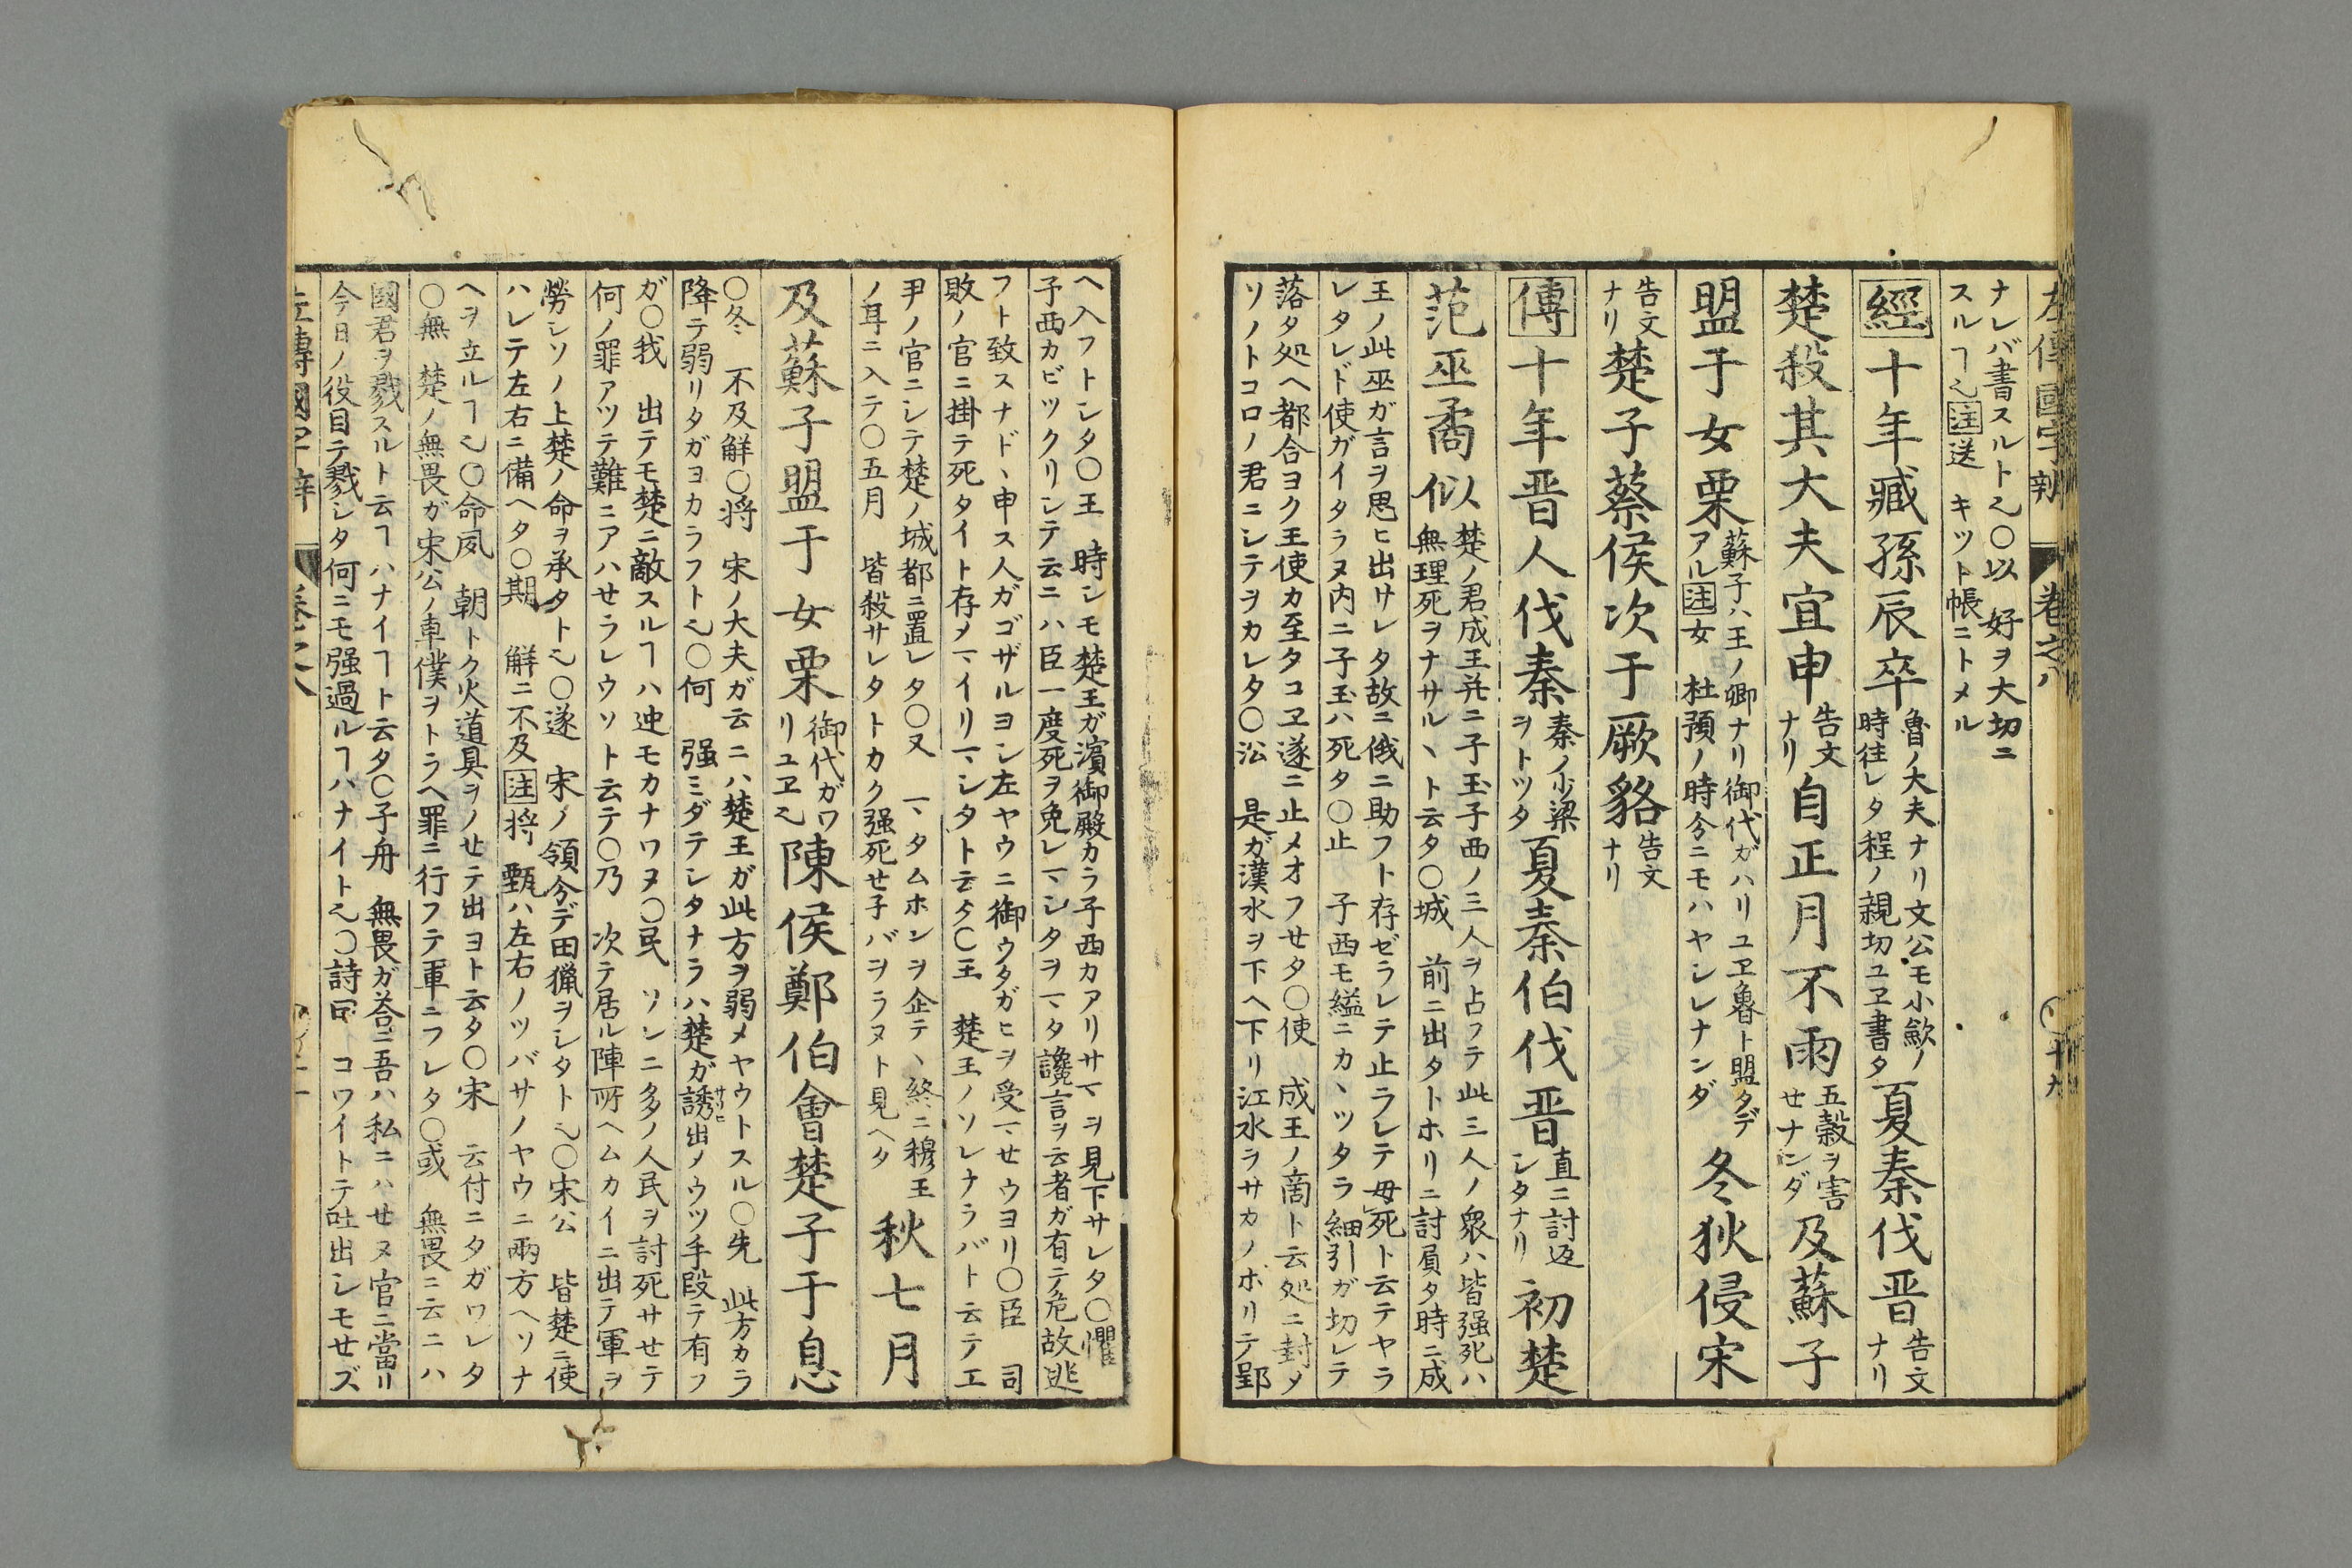 左傳國字辨 卷之八 十九
ナレバ書スルト也〇以 好ヲ大切ニ
スルヿ也注送 キツト帳ニトメル
經十年臧孫辰卒魯ノ大夫ナリ文公モ小歛ノ
時往レタ程ノ親切ユヱ書タ夏秦伐晋告文
ナリ
楚殺其大夫宜申告文
ナリ自正月不雨五穀ヲ害
せナンダ及蘇子
盟于女栗蘇子ハ王ノ卿ナリ御代ガハリユヱ魯ト盟タデ
アル注女 杜預ノ時今ニモハヤシレナンダ冬狄侵宋
告文
ナリ楚子蔡侯次于厥貉告文
ナリ
傳十年晋人伐秦秦ノ少梁
ヲトツタ夏秦伯伐晋直ニ討返
シタナリ初楚
范巫矞似楚ノ君成王并ニ子玉子西ノ三人ヲ占フテ此三人ノ衆ハ皆强死ハ
無理死ヲナサルヽト云タ〇城 前ニ出タトホリニ討負タ時ニ成
王ノ此巫ガ言ヲ思ヒ出サレタ故ニ俄ニ助フト存ゼラレテ止ラレテ毋死ト云テヤラ
レタレド使ガイタラヌ内ニ子玉ハ死タ〇止 子西モ縊ニカヽツタラ細引ガ切レテ
落タ処ヘ都合ヨク王使カ至タコヱ遂ニ止メオフせタ〇使 成王ノ商ト云処ニ封メ
ソノトコロノ君ニシテヲカレタ〇㳂 是ガ漢水ヲ下ヘ下リ江水ヲサカノボリテ郢
ヘ入フトシタ〇王 時シモ楚王ガ濱御殿カラ子西カアリサマヲ見下サレタ〇懼
子西カビツクリシテ云ニハ臣一度死ヲ免レマシタヲマタ讒言ヲ云者ガ有テ危故逃
フト致スナドヽ申ス人ガゴザルヨシ左ヤウニ御ウタガヒヲ受マせウヨリ〇臣 司
敗ノ官ニ掛テ死タイト存メマイリマシタト云タ〇王 楚王ノソレナラバト云テ工
尹ノ官ニシテ楚ノ城都ニ置レタ〇又 マタムホンヲ企テヽ終ニ穆王
ノ耳ニ入テ〇五月 皆殺サレタトカク强死せ子バヲラヌト見ヘタ秋七月
及蘇子盟于女栗御代ガワ
リユヱ也陳侯鄭伯會楚子于息
〇冬 不及觧〇将 宋ノ大夫ガ云ニハ楚王ガ此方ヲ弱メヤウトスル〇先 此方カラ
降テ弱リタガヨカラフト也〇何 强ミダテシタナラハ楚ガ誘出ノウツ手段テ有フ
ガ〇我 出テモ楚ニ敵スルヿハ迚モカナワヌ〇民 ソレニ多ノ人民ヲ討死サせテ
何ノ罪アツテ難ニアハせラレウソト云テ〇乃 次テ居ル陣所ヘムカイニ出テ軍ヲ
勞シソノ上楚ノ命ヲ承タト也〇遂 宋ノ領分デ田獵ヲシタト也〇宋公 皆楚ニ使
ハレテ左右ニ備ヘタ〇期 觧ニ不及注将 甄ハ左右ノツバサノヤウニ兩方ヘソナ
ヘヲ立ルヿ也〇命夙 朝トク火道具ヲノせテ出ヨト云タ〇宋 云付ニタガワレタ
〇無 楚ノ無畏ガ宋公ノ車僕ヲトラヘ罪ニ行フテ軍ニフレタ〇或 無畏ニ云ニハ
國君ヲ戮スルト云ヿハナイヿト云タ〇子舟 無畏ガ荅ニ吾ハ私ニハせヌ官ニ當リ
今日ノ役目テ戮シタ何ニモ强過ルヿハナイト也〇詩曰 コワイトテ吐出シモせズ
左傳國字辨 卷之八